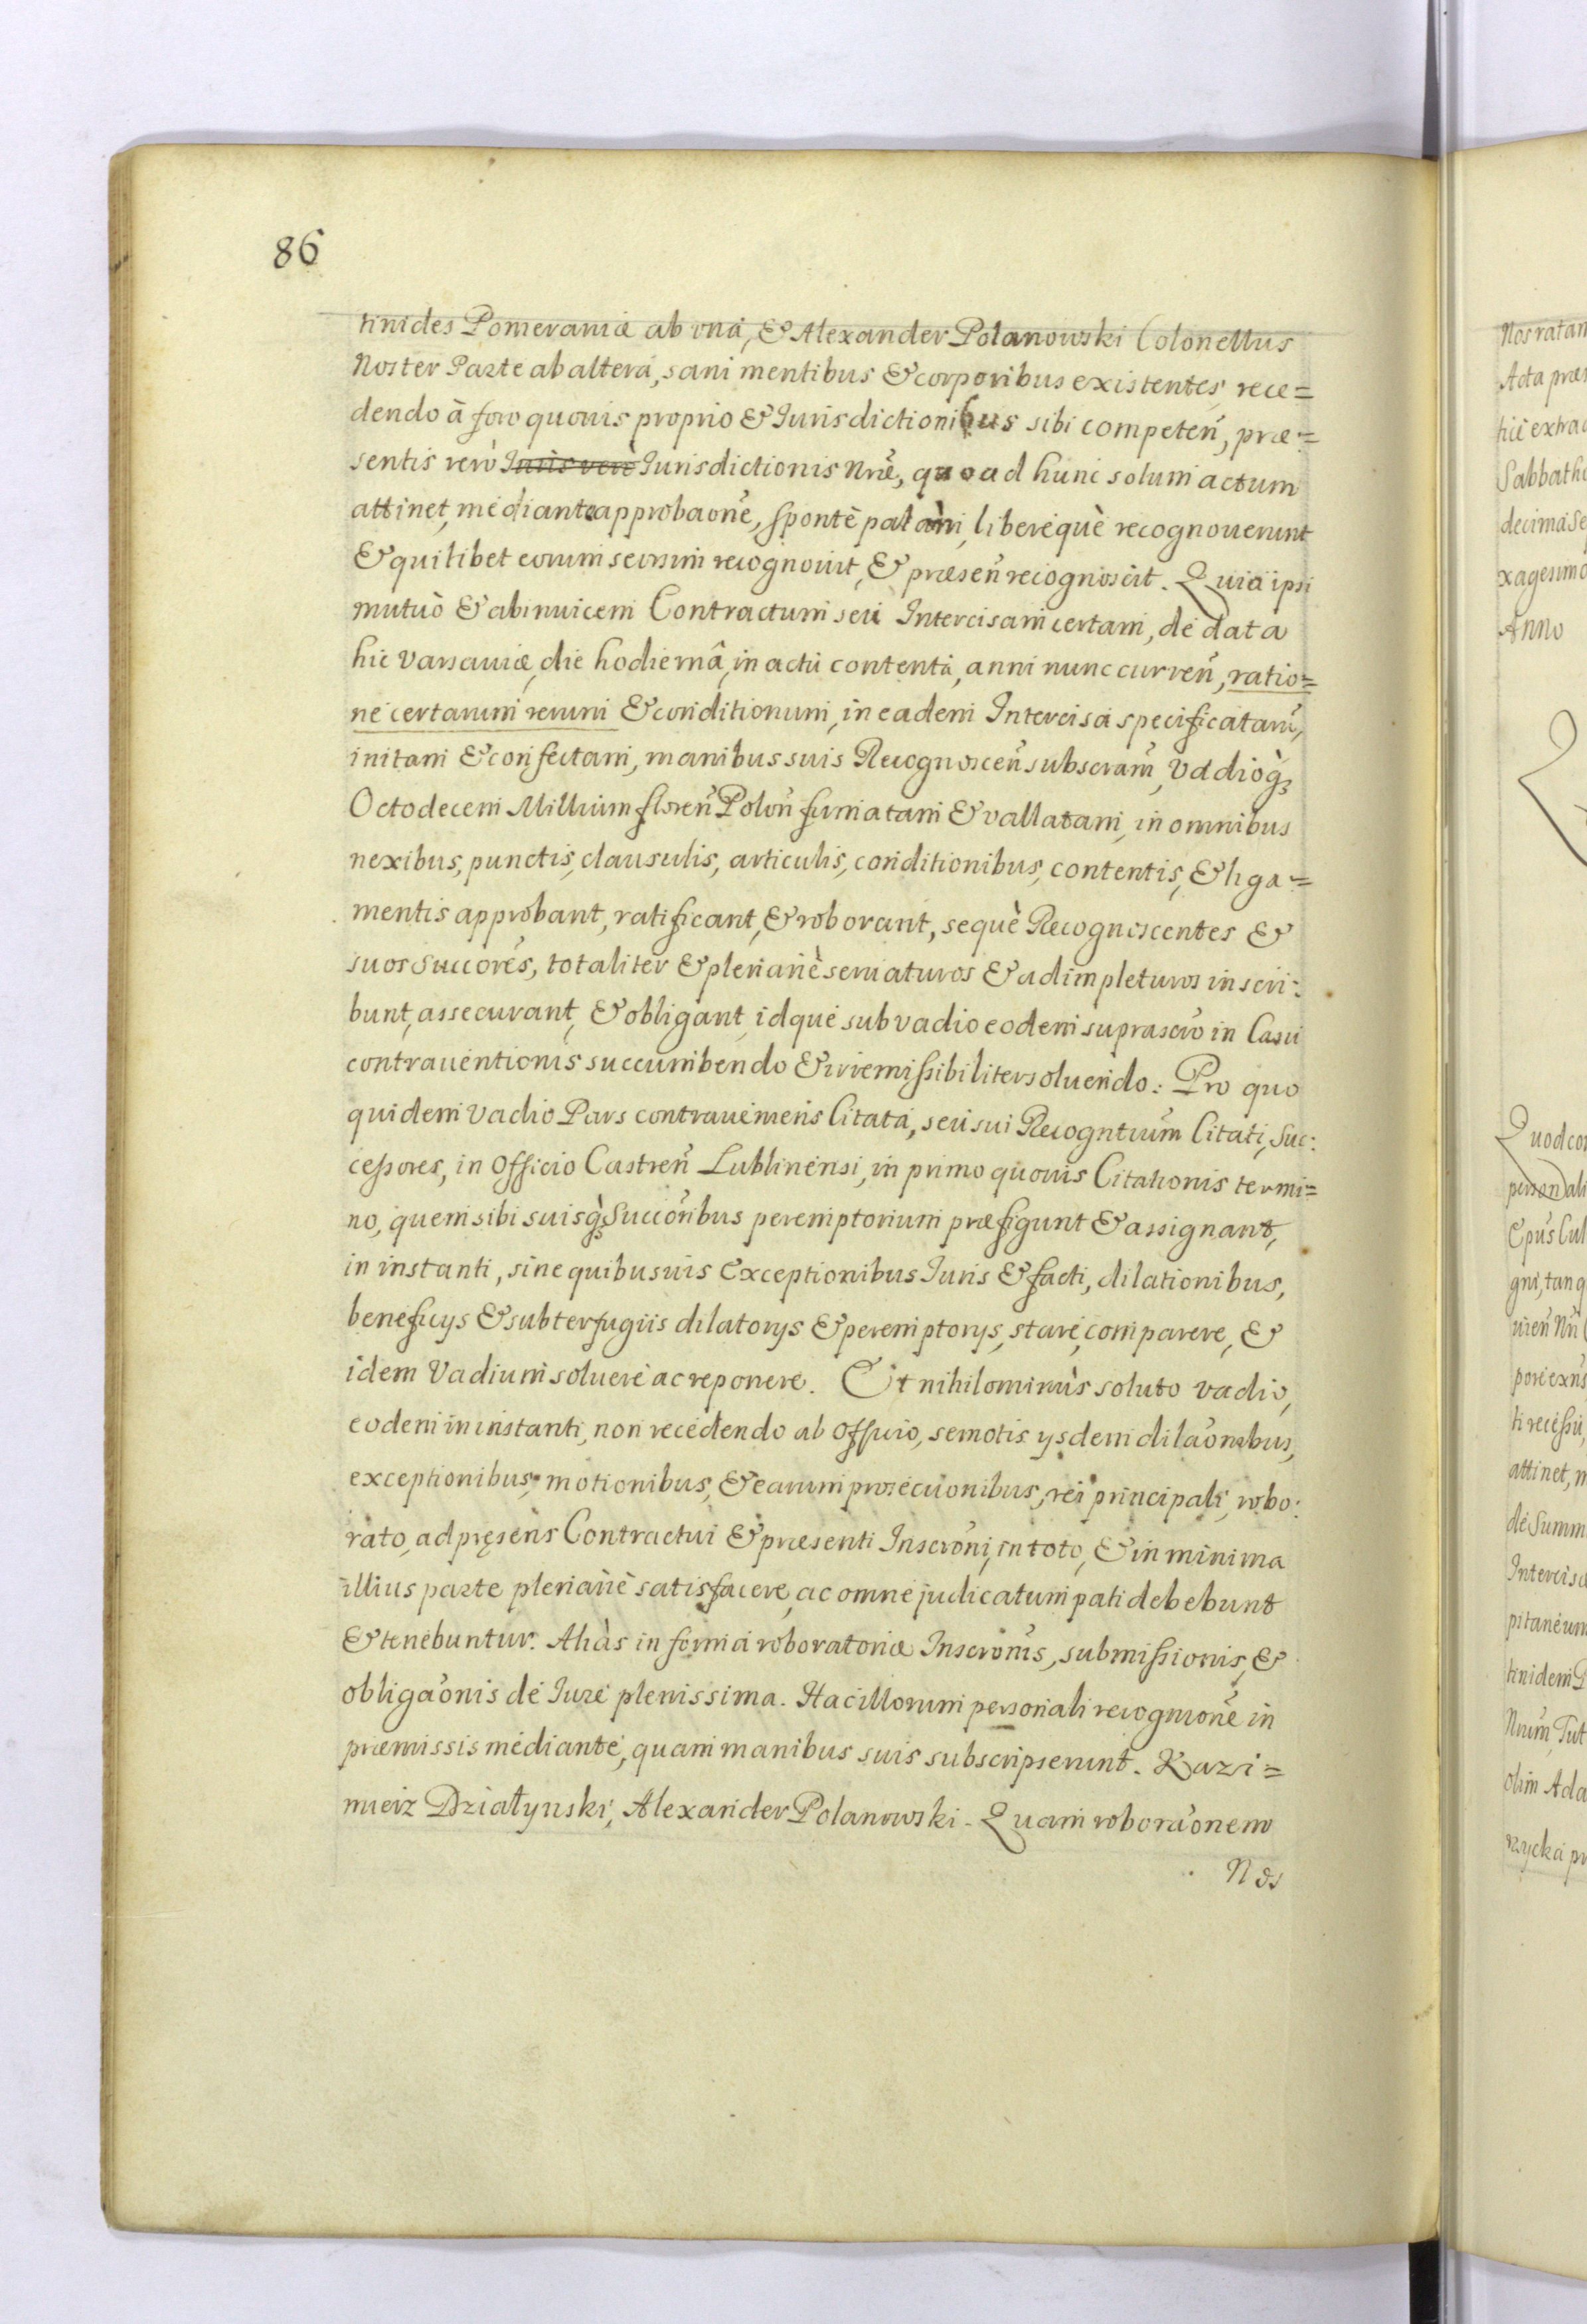 86
tinides Pomeraniæ ab vna, & Alexander Polanowski Colonellus
Noster Parte ab altera, sani mentibus & corporibus existentes, rece=
dendo à foro quouis proprio & Iurisdictionibus sibi competeñ, præ=
sentis verò Iuris verè Iurisdictionis Nrẽ, quoad hunc solum actum
attinet, mediante approbaonẽ, spontè palàm, liberèquè recognouerunt
& quilibet eorum seorsim recognouit, & præseñ recognoscit. Quia ipsi
mutuò & abinuicem Contractum seu Intercisam certam, de data
hic Varsauiæ, die hodiernâ, in actu contenta, anni nunc curreñ, ratio=
ne certarum rerum & conditionum, in eadem Intercisa specificatarũ,
initam & confectam, manibus suis Recognosceñ subscram̃, Vadioq́;
Octodecem Millium floreñ Poloñ firmatam & vallatam, in omnibus
nexibus, punctis, clausulis, articulis, conditionibus, contentis, & liga=
mentis approbant, ratificant, & roborant, sequè Recognoscentes &
suos Succorẽs, totaliter & plenariè seruaturos & adimpleturos inscri:
bunt, assecurant, & obligant, idque sub vadio eodem suprascrõ in Casu
contrauentionis succumbendo & irremissibiliter soluendo: Pro quo
quidem Vadio Pars contraueniens Citata, seu sui Recogntium̃ Citati, Suc:
cessores, in Officio Castreñ Lublinensi, in primo quouis Citationis termi=
no, quem sibi suisq́; Succoribus peremptorium præfigunt & assignant,
in instanti, sine quibusuis Exceptionibus Iuris & facti, dilationibus,
beneficys & subterfugiis dilatorys & peremptorys, stare, comparere, &
idem Vadium soluere ac reponere. Et nihilominùs soluto vadio,
eodem in instanti, non recedendo ab Officio, semotis ysdem dilaõnibus,
exceptionibus, motionibus, & earum prosecuonibus, rei principali, robo:
rato, ad pręsens Contractui & præsenti Inscrõni, in toto, & in minima
illius parte plenariè satisfacere, ac omne judicatum pati debebunt
& tenebuntur. Aliàs in forma roboratoriæ Inscrõnis, submissionis, &
obligaõnis de Iure plenissima. Hac illorum personali recognionẽ in
præmissis mediante, quam manibus suis subscripserunt. Kazi=
mierz Działynski, Alexander Polanowski. Quam roboraõnem
Nos